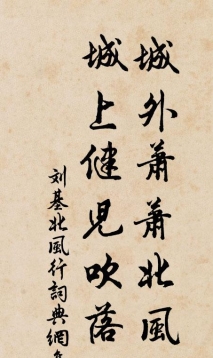 城外萧萧北風
城上健兒吹落
刘基北風行詞典網